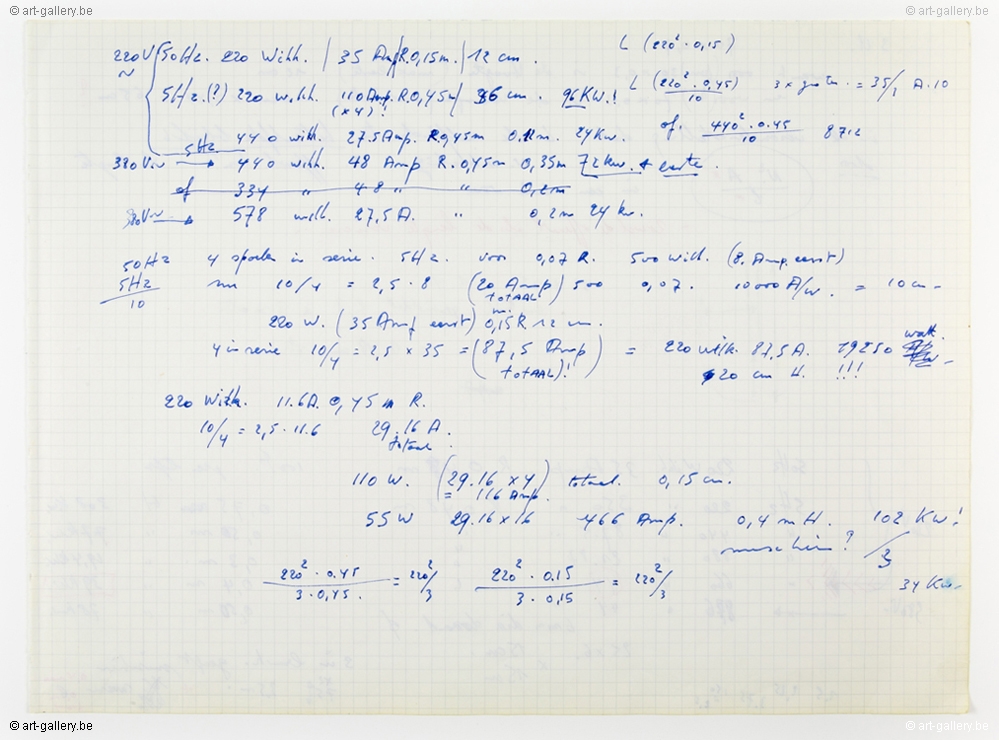 © art-gallery.be © art-gallery.be
220V 50Hz. 220 Wikk. | 35 Amp R.0,15m. | 12 cm. L (220² · 0,15)
~
5Hz.(?) 220 wikk. 110 Amp. R.0,45m 36 cm. 96 KW.! L (220² · 0,45)/10 3 x groter = 35/3 A. 10
(x4)!
440 wikk. 27.5 Amp. R0,45m 24 Kw. of. 440² · 0.45/10 8712
5Hz
380V. 440 wikk. 48 Amp R. 0,45m 0,35m 72 kw.
of 334 " 48 " " 0,2m
380V 578 wikk. 27,5 A. " 0,2m 24 kw.
50Hz 4 spoelen in serie. 5Hz. voor 0,07 R. 500 Wikk. (8. Amp. eerst)
5Hz/10 nu 10/4 = 2,5 · 8 (20 Amp TOTAAL) 500 0,07. 10000 A/w. = 10 cm
220 W. (35 Amp eerst) 0,15 R 12 cm.
m.
4 in serie 10/4 = 2,5 x 35 = (87,5 Amp TOTAAL)! = 220 wikk. 87,5 A. 19250 watt
20 cm H. !!!
220 Wikk. 11.6A. 0,45 m R.
10/4 = 2,5 · 11.6 29.16 A.
totaal
110 W. (29.16 x 4) totaal. 0,15 cm.
= 116 Amp.
55 W 29.16 x 16 466 Amp. 0,4 m H. 102 KW!
misschien? /3
220² · 0.45/3 · 0,45. = 220²/3 220² · 0.15/3 · 0,15 = 220²/3 34 Kw.
© art-gallery.be © art-gallery.be